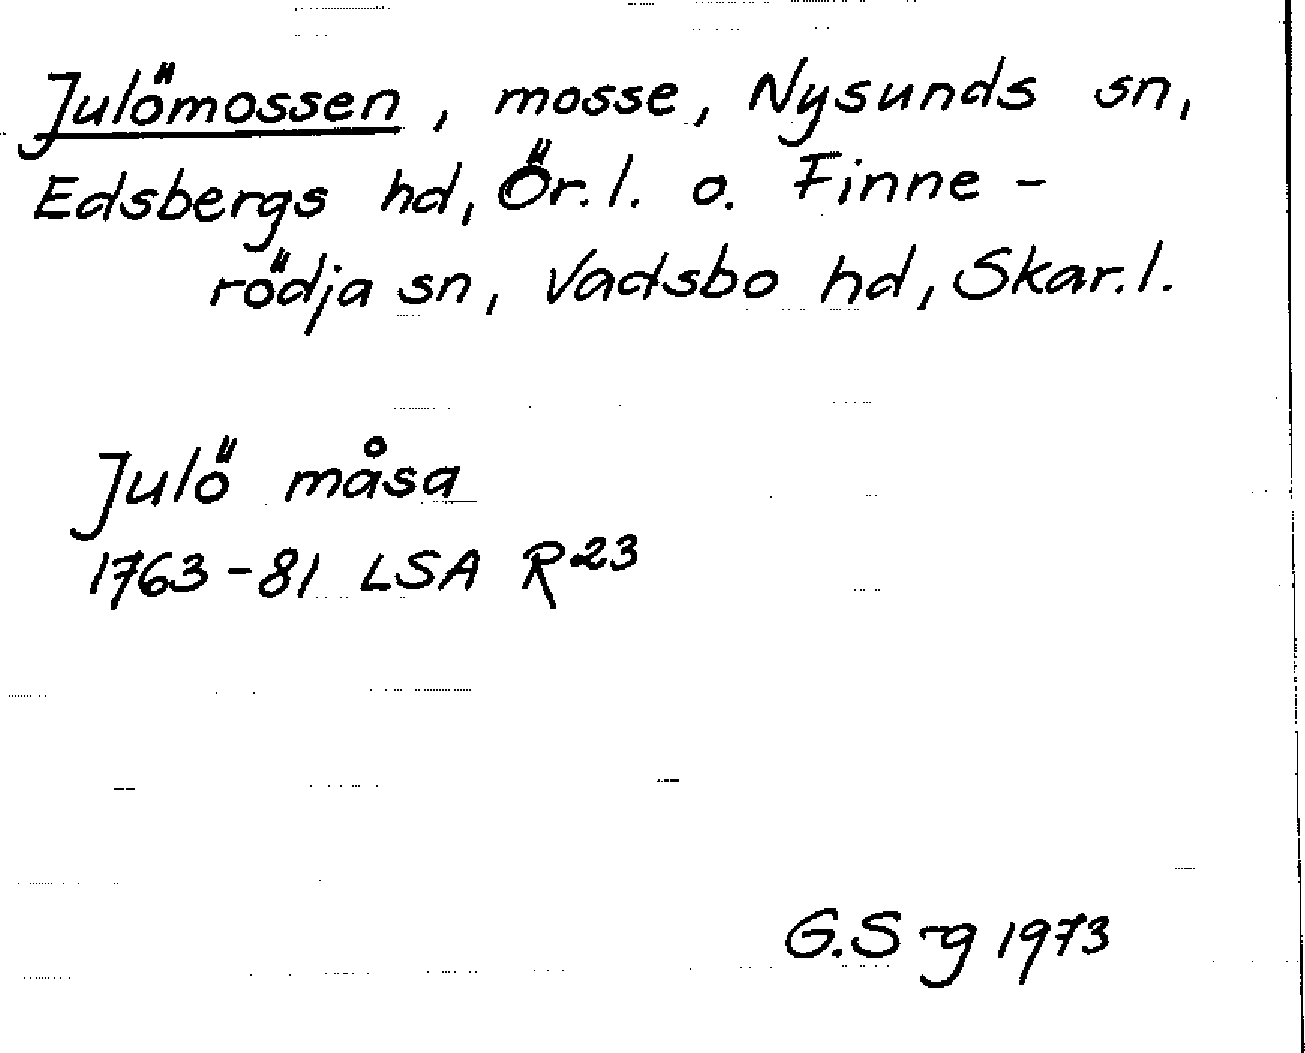 Julömossen, mosse, Nysunds sn,
Edsbergs hd, Ör. l. o. Finne-
rödja sn, Vadsbo hd, Skar. l.
Julö måsa
1763-81 LSA R23
G.S-g 1973